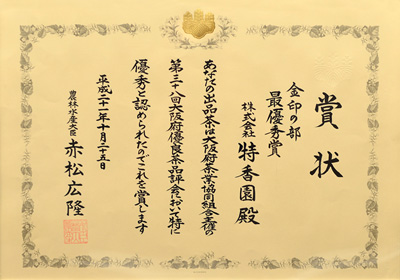 賞状
金印の部
最優秀賞
株式会社 特香園殿
あなたの出品茶は大阪府茶業協同組合主催の
第三十八回大阪府優良茶品評会において特に
優秀と認められたのでこれを賞します
平成二十一年十月二十五日
農林水産大臣 赤松広隆